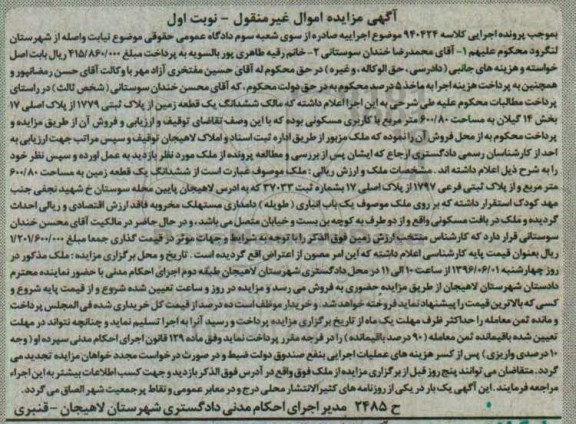 آگهی مزایده اموال غیرمنقول - نوبت اول
بموجب پرونده اجرایی کلاسه ۹۴۰۴۲۴ موضوع اجراییه صادره از سوی شعبه سوم دادگاه عمومی حقوقی موضوع نیابت واصله از شهرستان
لنگرود محکوم علیهم ۱- آقای محمدرضا خندان سوستانی ۲- خانم رقیه طاهری پور بالسویه به پرداخت مبلغ ۴۱۵/۸۶۰/۰۰۰ ریال بابت اصل
خواسته و هزینه های جانبی (دادرسی، حق الوکاله، و غیره) در حق محکوم له آقای حسین مفتخری آزاد مهر با وکالت آقای حسن رمضانپور و
همچنین به پرداخت هزینه اجرا به ماخذ ۵ درصد محکوم به در حق دولت محکوم، که آقای محسن خندان سوستانی (شخص ثالث) در راستای
پرداخت مطالبات محکوم علیه طی شرحی به این اجرا اعلام داشته که مالک ششدانگ یک قطعه زمین از پلاک ثبتی ۱۷۷۹ از پلاک اصلی ۱۷
بخش ۱۴ گیلان به مساحت ۶۰۰/۸۰ متر مربع با کاربری مسکونی بوده که با این وصف تقاضای توقیف و ارزیابی و فروش آن از طریق مزایده و
پرداخت محکوم به از محل فروش آن را نموده که ملک مزبور از طریق اداره ثبت اسناد و املاک لاهیجان توقیف و سپس مراتب جهت ارزیابی به
احد از کارشناسان رسمی دادگستری ارجاع که ایشان پس از بررسی و مطالعه پرونده از ملک مورد نظر بازدید به عمل آورده و سپس نظر خود
را به شرح ذیل اعلام داشته اند. مشخصات ملک و ارزش ریالی: ملک موصوف عبارت است از ششدانگ یک قطعه زمین به مساحت ۶۰۰/۸۰
متر مربع و از پلاک ثبتی فرعی ۱۷۹۷ از پلاک اصلی ۱۷ بشماره ثبت ۳۷۰۳۳ که به آدرس لاهیجان پایین محله سوستان خ شهید نجفی جنب
مهد کودک استقرار داشته که بر روی ملک موصوف یک باب انباری (طویله) دامداری مستهلک مخروبه فاقد ارزش اقتصادی و ریالی احداث
گردیده و ملک در بافت مسکونی واقع و از دو طرف به کوچه بن بست و خیابان متصل می باشد، و در حال حاضر در مالکیت آقای محسن خندان
سوستانی قرار دارد که کارشناس منتخب ارزش زمین فوق الذکر را با توجه به شرایط و جهات موثر در قیمت گذاری جمعا مبلغ ۱/۲۰۱/۶۰۰/۰۰۰
ریال بعنوان قیمت پایه کارشناسی اعلام داشته که این امر مصون از اعتراض واقع گردیده است. تاریخ و محل برگزاری مزایده: ملک مذکور در
روز چهارشنبه ۱۳۹۶/۰۶/۰۱ از ساعت ۱۰ الی ۱۱ در محل دادگستری شهرستان لاهیجان طبقه دوم اجرای احکام مدنی با حضور نماینده محترم
دادستان شهرستان لاهیجان از طریق مزایده حضوری به فروش می رسد و مزایده در روز و ساعت تعیین شده شروع و از قیمت پایه شروع و
کسی که بالاترین قیمت را پیشنهاد نماید فروخته خواهد شد. و خریدار موظف است ده درصد از قیمت کل خریداری شده فی المجلس پرداخت
و مانده ثمن معامله را حداکثر ظرف مهلت یک ماه از تاریخ برگزاری مزایده پرداخت و رسید آنرا به اجرا تسلیم نماید و چنانچه نتواند در مهلت
تعیین شده باقیمانده ثمن معامله (۹۰ درصد باقیمانده) را در فرجه مقرر پرداخت نماید وفق ماده ۱۲۹ قانون اجرای احکام مدنی سپرده او (وجه
۱۰ درصدی واریزی) پس از کسر هزینه های عملیات اجرایی بنفع صندوق دولت ضبط و در صورت درخواست مجدد خواهان مزایده تجدید می
گردد. متقاضیان می توانند پنج روز قبل از برگزاری مزایده از ملک فوق واقع در آدرس فوق الذکر بازدید و جهت کسب اطلاعات بیشتر به این اجراء
مراجعه فرمایند. این آگهی یک بار در یکی از روزنامه های کثیرالانتشار محلی درج و در معابر عمومی و نقاط پرجمعیت شهر الصاق می گردد.
ح ۲۴۸۵ مدیر اجرای احکام مدنی دادگستری شهرستان لاهیجان - قنبری